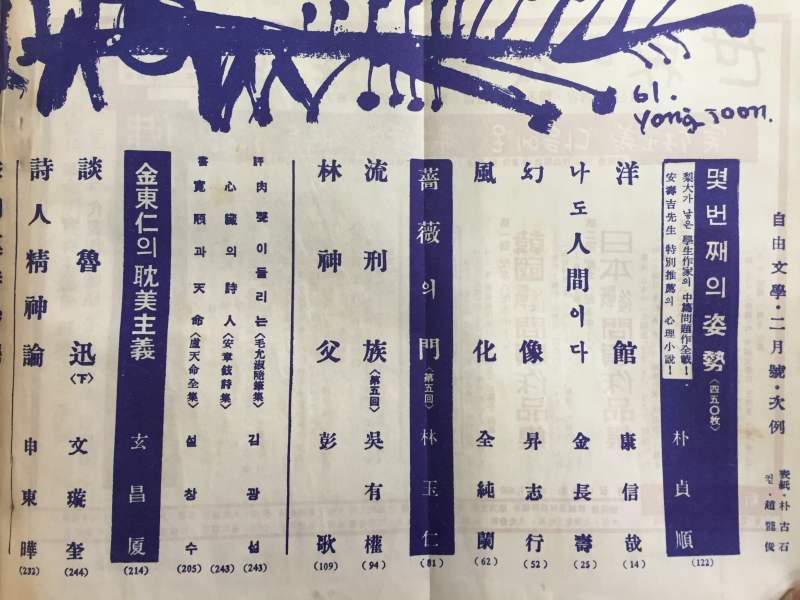 61.
Yong Soon.
自由文學·二月號·次例
表紙·朴古石
컽·趙龍俊
몇번째의 姿勢〈四五○枚〉 朴貞順 (122)
梨大가 낳은 學生作家의 中篇問題作全載!
安壽吉先生 特別推薦의 心理小說!
洋館 康信哉 (14)
나도 人間이다 金長壽 (25)
幻像 昇志行 (52)
風化 全純蘭 (62)
薔薇의 門〈第五回〉 林玉仁 (81)
流刑族〈第五回〉 吳有權 (94)
林神父 彭歌 (109)
評 肉聲이 들리는〈毛允淑隨筆集〉 김광섭 (243)
心臟의 詩人〈安章鉉詩集〉 (243)
書 寬順과 天命〈盧天命全集〉 설창수 (205)
金東仁의 耽美主義 玄昌厦 (214)
談魯迅〈下〉 文璇奎 (244)
詩人精神論 申東曄 (232)